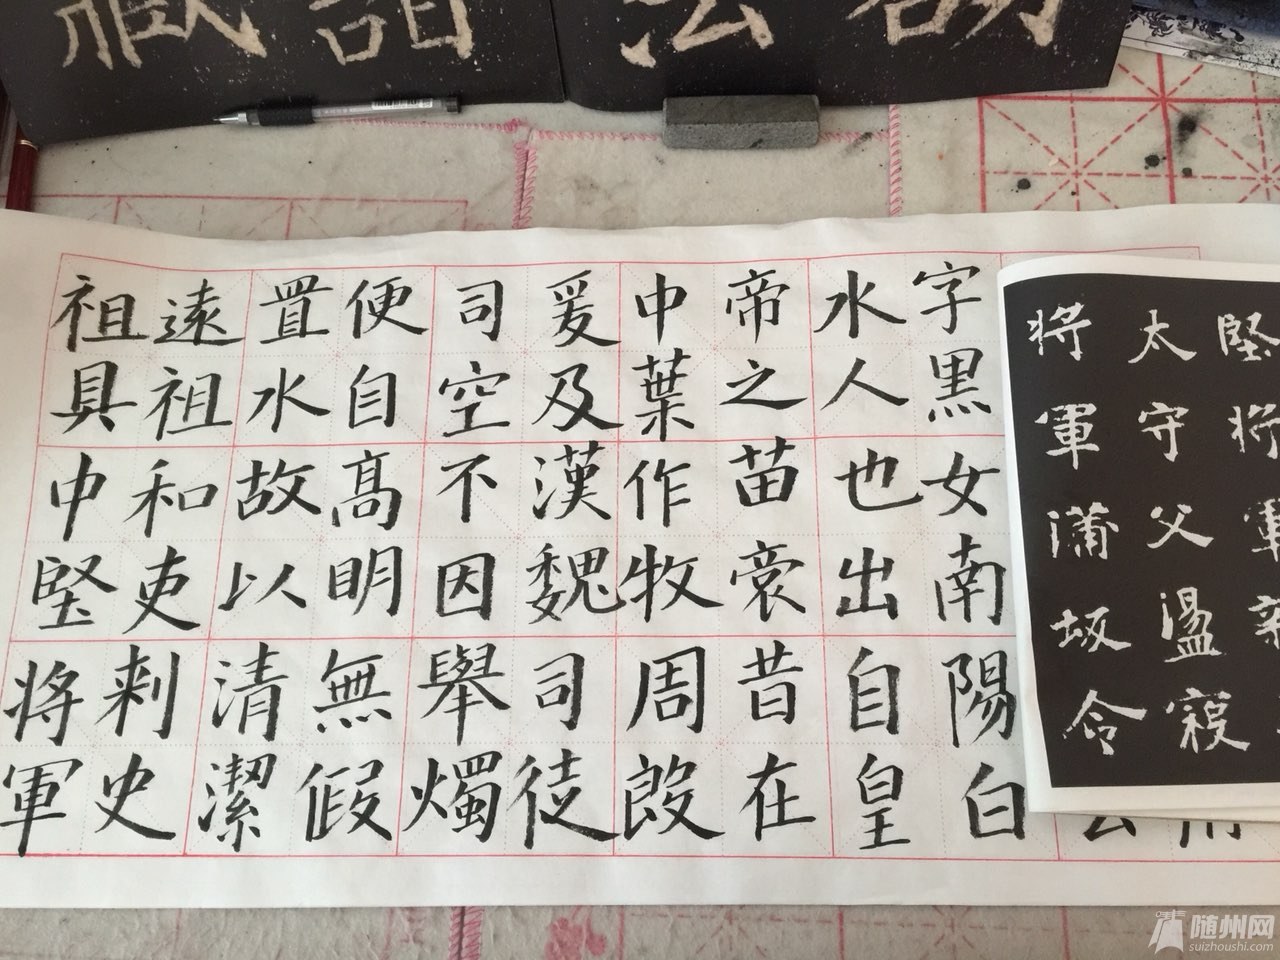 字黑女南陽白
水人也出自皇
帝之苗裔昔在
中葉作牧周殷
爰及漢魏司徒
司空不因舉燭
便自高明無假
置水故以清潔
遠祖和吏刺史
祖具中堅將軍
堅將軍新
太守父溫寇
將軍蒲坂令
随州网
suizhoushi.com